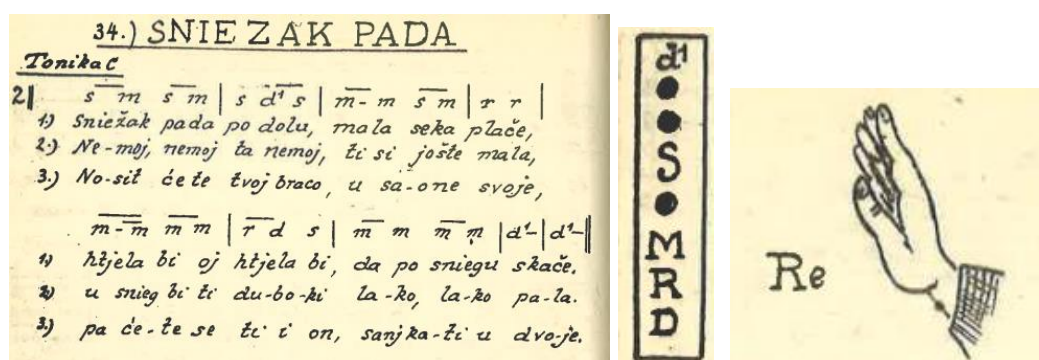 34.) SNIEZAK PADA
Tonika C
2| s m s m | s d¹ s | m- m s m | r r |
1.) Sniežak pada po dolu, mala seka plače,
2.) Ne-moj, nemoj ta nemoj, ti si jošte mala,
3.) No-sit će te tvoj braco, u sa-one svoje,
m-m m m | r d s | m m m m | d¹- | d¹- ||
1) htjela bi oj htjela bi, da po sniegu skače.
2) u snieg bi ti du-bo-ki la-ko, la-ko pa-la.
3.) pa će-te se ti i on, sanjka-ti u dvo-je.
d¹
S
M
R
D
Re